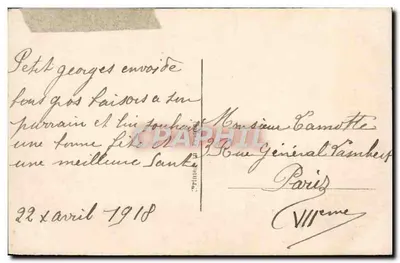 Petit georges envoi de
tous gros baisers a son
parrain et lui souhait
une bonne fête et
une meilleure santé
22 avril 1918
Monsieur Lamotte
2 Rue Général Lambert
Paris
VIIeme